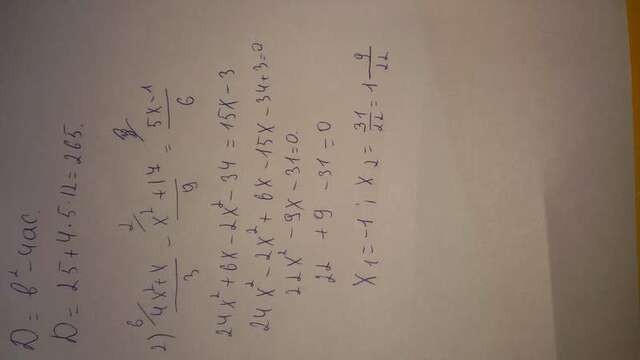 D = b² - 4ac.
D = 25 + 4·5·12 = 265.
2) ⁶/ (4x² + x)/3 - ²/ (x² + 17)/9 = ³/ (5x - 1)/6
24x² + 6x - 2x² - 34 = 15x - 3
24x² - 2x² + 6x - 15x - 34 + 3 = 0
22x² - 9x - 31 = 0.
22 + 9 - 31 = 0
x₁ = -1; x₂ = 31/22 = 1 9/22